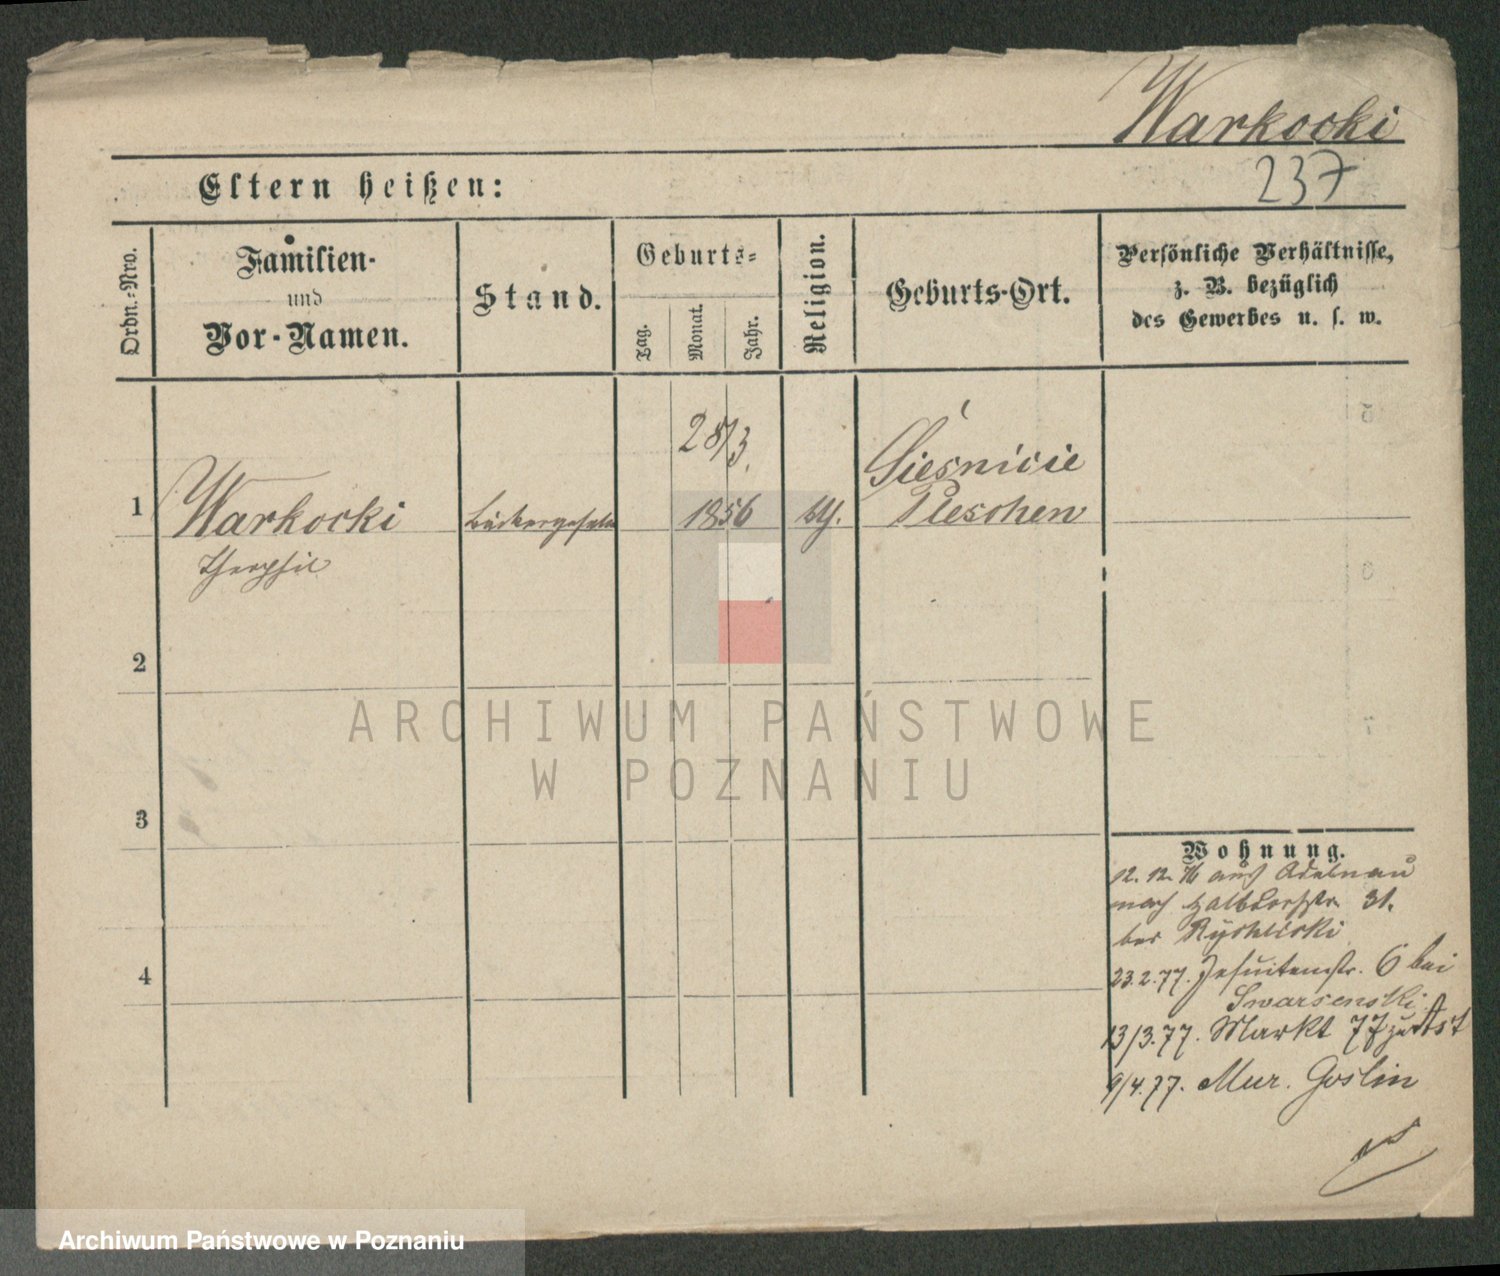 Warkocki
237
Eltern heißen:
Ordn.-Nro.
Familien-
und
Vor-Namen.
Stand.
Geburts-
Tag.
Monat.
Jahr.
Religion.
Geburts-Ort.
Persönliche Verhältnisse,
z. B. bezüglich
des Gewerbes u. s. w.
1
Warkocki
Theophil
Bäckergeselle
28/3.
1856
kth.
Pleschen
2
3
4
Wohnung.
12. 12. 76 aus Adelnau
nach Halbdorfstr. 31.
bei Rychlicki
23. 2. 77. Jesuitenstr. 6 bei
Swarsenski
13/3. 77. Markt 77
9/4. 77. Mur. Goslin
ARCHIWUM PAŃSTWOWE
W POZNANIU
Archiwum Państwowe w Poznaniu